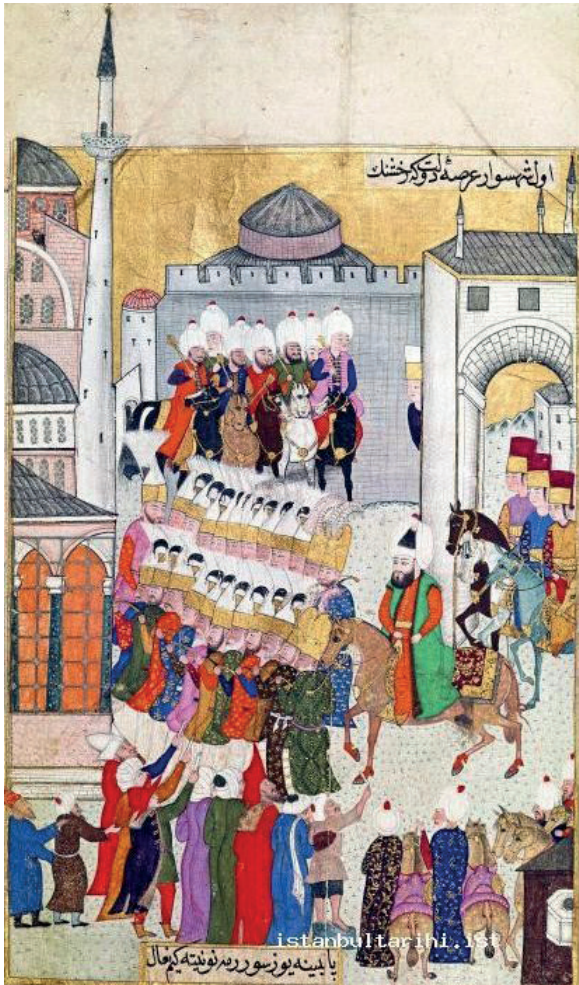 اول شهسوار عرصهٔ دولت که رخشنك
istanbultarihi.ist
پاینه یوز سورر مه نو نیته کیم